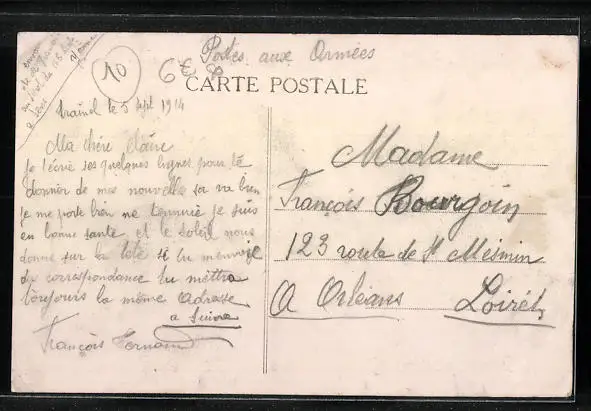 Postes aux Armées
10
6€
CARTE POSTALE
Trainel le 5 Sept 1914
Ma chère Claire
je t'écrie ses quelques lignes pour te
donner de mes nouvelle sa va bien
je me porte bien ne t'ennuie je suis
en bonne santé et le soleil nous
donne sur la tete si tu m'envoie
de correspondance tu mettra
toujours la même Adresse
a Suivre
François Fernand
Madame
François Bourgoin
123 route de St Mésmin
A Orléans Loiret